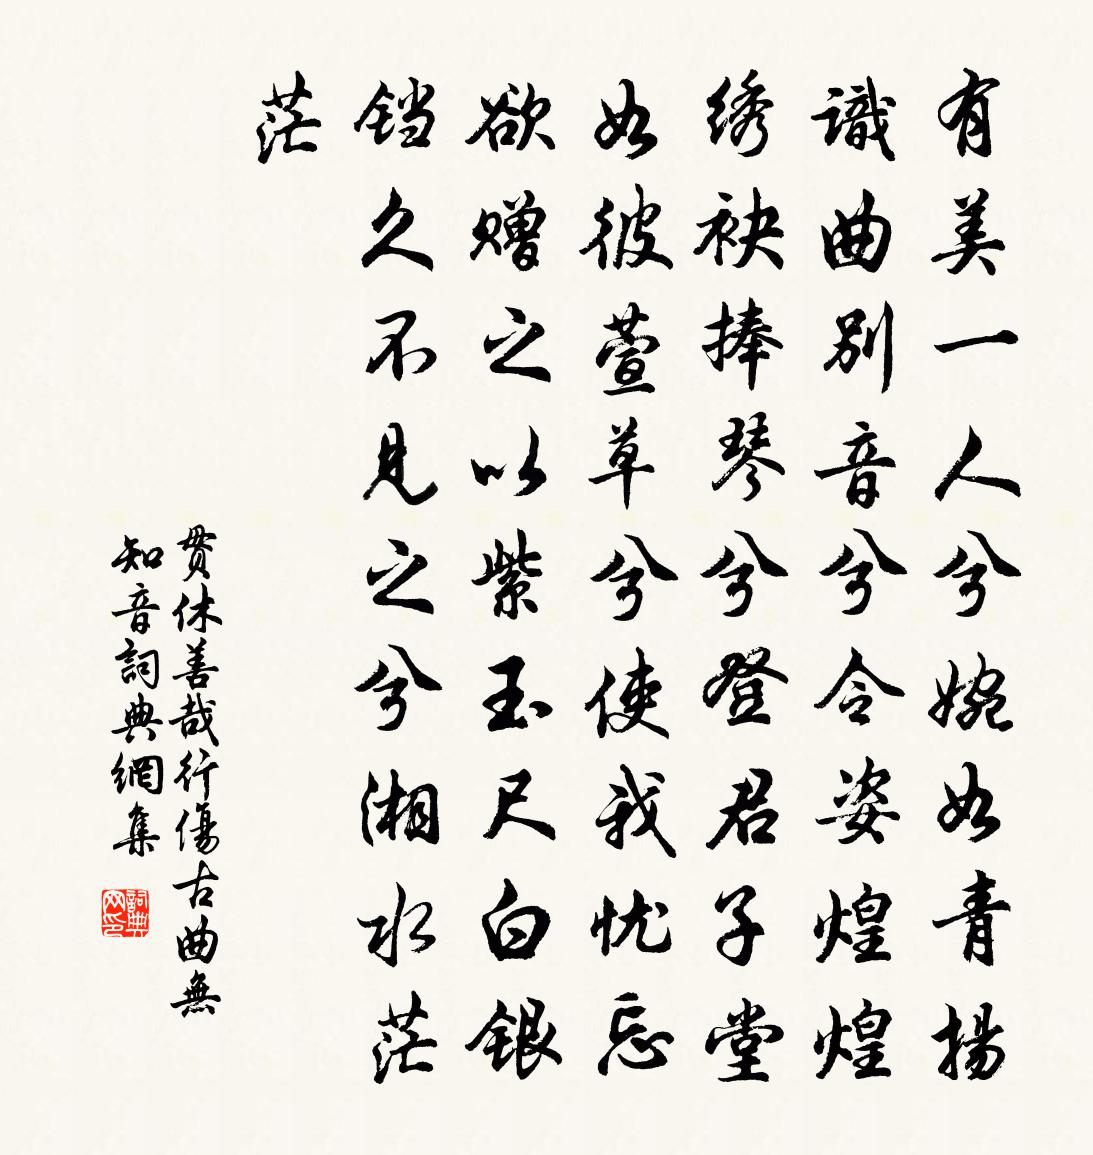 有美一人兮婉如青揚
識曲别音兮令姿煌煌
绣袂捧琴兮登君子堂
如彼萱草兮使我忧忘
欲赠之以紫玉尺白銀
铛久不見之兮湘水茫
茫
贯休善哉行傷古曲無
知音詞典網集
詞典
网印